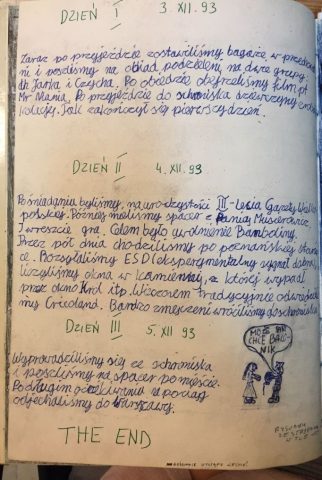 DZIEŃ I 3.XII.93
Zaraz po przyjeździe zostawiliśmy bagaże w przedsio
ni i poszliśmy na obiad podzieleni na dwie grupy
dh Jarka i Czycha. Po obiedzie obejrzeliśmy film pt
Mr Mania. Po przyjeździe do schroniska
kolację. Tak zakończył się pierwszy dzień.
DZIEŃ II 4.XII.93
Po śniadaniu byliśmy na uroczystości III-lecia Gazety Wielko
polskiej. Później mieliśmy spacer z Panią
I wreszcie gra. Celem było uwolnienie Bamboliny.
Przez pół dnia chodziliśmy po poznańskiej starów
ce. Rozsyłaliśmy ESD (eksperymentalny sygnał dobra),
liczyliśmy okna w kamienicy, z której wypadł
przez okno Król itp. Wieczorem tradycyjnie odwiedzili
my Cricoland. Bardzo zmęczeni wróciliśmy do schroniska
DZIEŃ III 5.XII.93
Wyprowadziliśmy się ze schroniska
i poszliśmy na spacer po mieście.
Po długim oczekiwaniu w pociąg
odjechaliśmy do Warszawy.
MOŻE PAN
CHCE BALO-
NIK
RYSUNEK
THE END